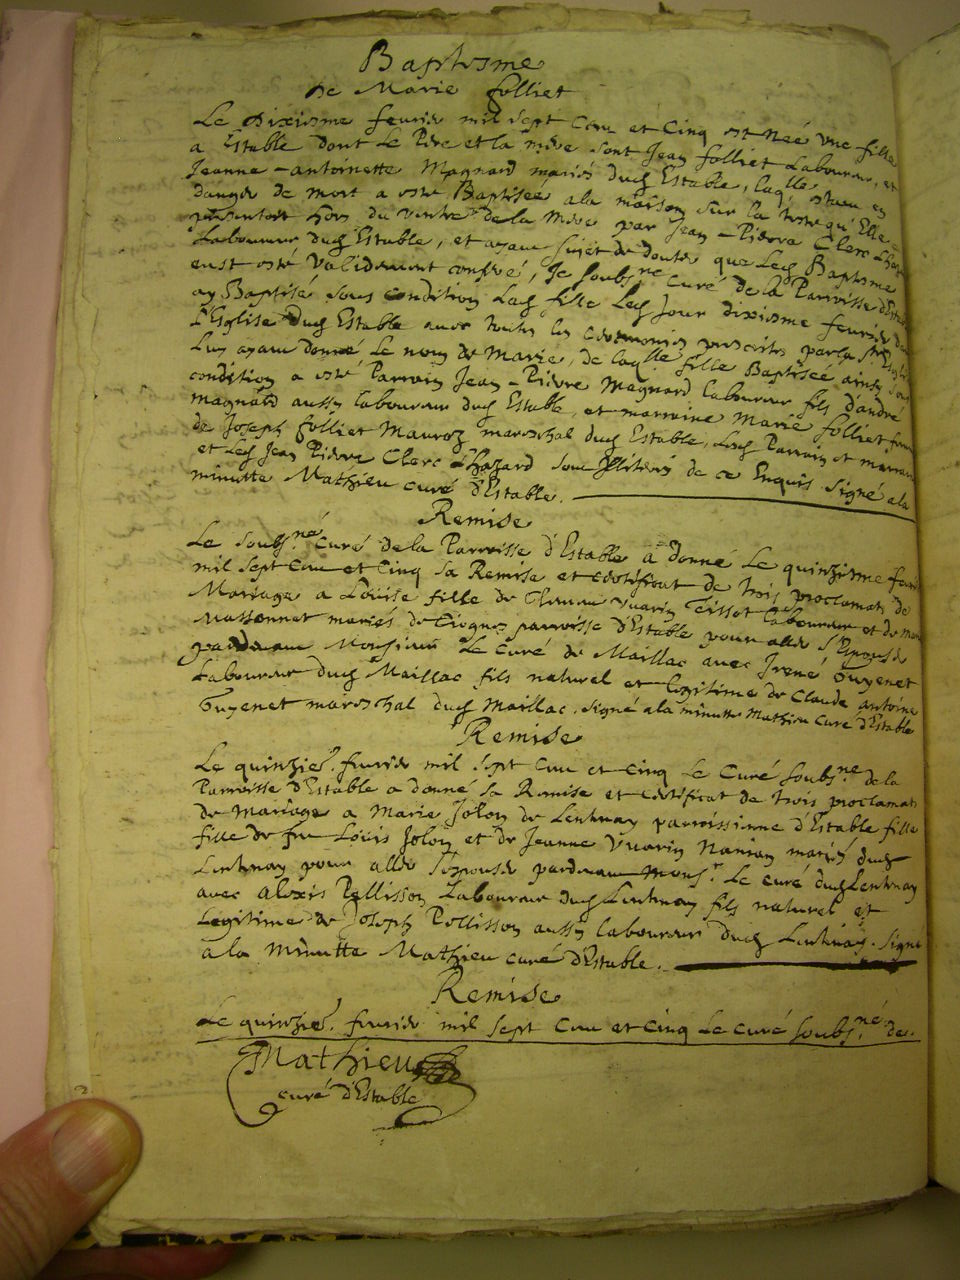 Baptisme
de Marie folliet
Le dixiesme feuvrier mil sept cens et cinq est neé une fille
a Estable dont Le Pere et la mere sont Jean folliet Laboureur, et
Jeanne-antoinette Magnard mariés dud Estable, laq'lle estant en
danger de mort a esté Baptiséé a la maison sur la teste qu'Elle
presentoit hors du ventre de la Mere par Jean-Pierre Clerc Lhazard
Laboureur dud Estable, et ayant sujet de douter que Led Baptisme
eust esté validement conferé, Je soubs.né Curé de la Parroisse d'Estable
ay Baptisé sous condition Lad fille Led Jour dixiesme feuvrier dans
l'Eglise dud Estable avec toutes les ceremonies prescrites par la Ste Eglise
Luy ayant donné Le nom de Marie, de laq'lle fille Baptiséé ainsy sous
condition a esté Parrain Jean-Pierre Magnard laboureur fils d'andré
Magnard aussy laboureur dud Estable, et marraine Marie folliet femme
de Joseph folliet Mauroz mareschal dud Estable, Lesd Parrain et marraine
et Led Jean Pierre Clerc Lhazard sont illiterés de ce Enquis. Signé a la
minutte Mathieu curé d'Estable.
Remise
Le soubs.né Curé de la Parroisse d'Estable a donné Le quinziesme feuvrier
mil sept cens et cinq sa Remise et certificat de trois proclamats de
Mariage a Louise fille de Vuarin Tissot laboureur et de
Massonnat mariés de parroisse d'Estable pour aller s'Epouser
pardevant Monsieur Le curé de Maillac avec Irené Guyenet
Laboureur dud Maillac fils naturel et legitime de Claude antoine
Guyenet mareschal dud Maillac. signé a la minutte Mathieu Curé d'Estable
Remise
Le quinzie. feuvrier mil sept cens et cinq Le Curé soubs.né de la
Parroisse d'Estable a donné sa Remise et certificat de trois proclamats
de Mariage a Marie Jolon de Lentenay parroissienne d'Estable fille
fille de feu Louis Jolon et de Jeanne Vuarin mariés dud
Lentenay pour aller s'epouser pardevant Monsr. Le curé dud Lentenay
avec alexis Pellisson Laboureur dud Lentenay fils naturel et
Legitime de Joseph Pellisson aussy laboureur dud Lentenay. Signé
a la minutte Mathieu curé d'Estable.
Remise
Le quinzie. feuvrier mil sept cens et cinq Le curé soubs.né de.
Mathieu
curé d'Estable